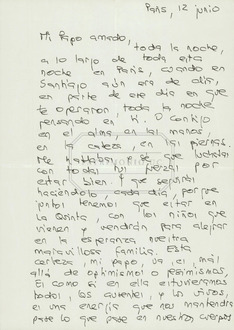 París, 12 junio
Mi Papo amado,
toda la noche,
a lo largo de toda esta
noche en París, cuando en
Santiago aún era de día,
en parte de ese día en que
te operaron, toda la noche
pensando en ti. O contigo
en el alma, en las manos,
en la cabeza, en las piernas.
Me hablabas, sé que luchabas
con todas tus fuerzas por
estar bien y que seguirás
haciéndolo cada día, porque
juntos tenemos que estar en
la Quinta, con los niños que
vienen y vendrán para alegrar
en la esperanza nuestra
maravillosa familia. Esta
certeza, mi papo, va, el, más
allá de optimismos o pesimismos.
Es como si en ella estuviéramos
todos, los ausentes y los vivos,
es una energía que nos mantendrá
pase lo que pase en nuestros cuerpos